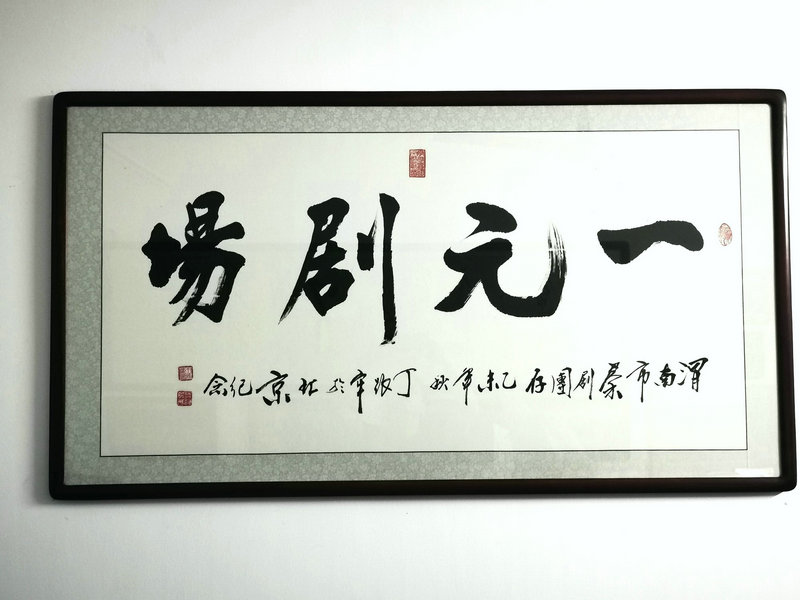 一元剧場
渭南市秦剧團存乙未年秋丁政军於北京纪念